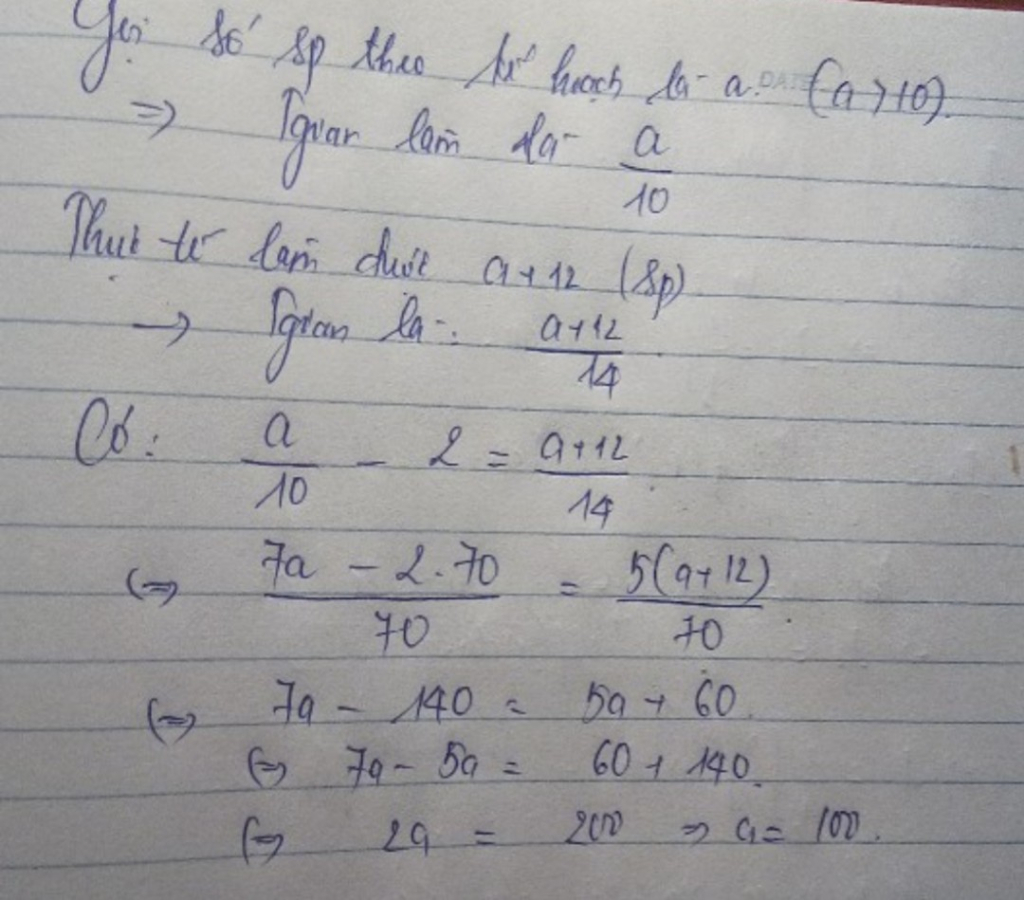 Gọi số sp theo kế hoạch là a. (a > 10)
=> Tgian làm là a/10
Thực tế làm được a+12 (sp)
→ Tgian là: a+12/14
Có: a/10 - 2 = a+12/14
(=> 7a - 2.70/70 = 5(a+12)/70
(=> 7a - 140 = 5a + 60.
(=> 7a - 5a = 60 + 140.
(=> 2a = 200 => a = 100.